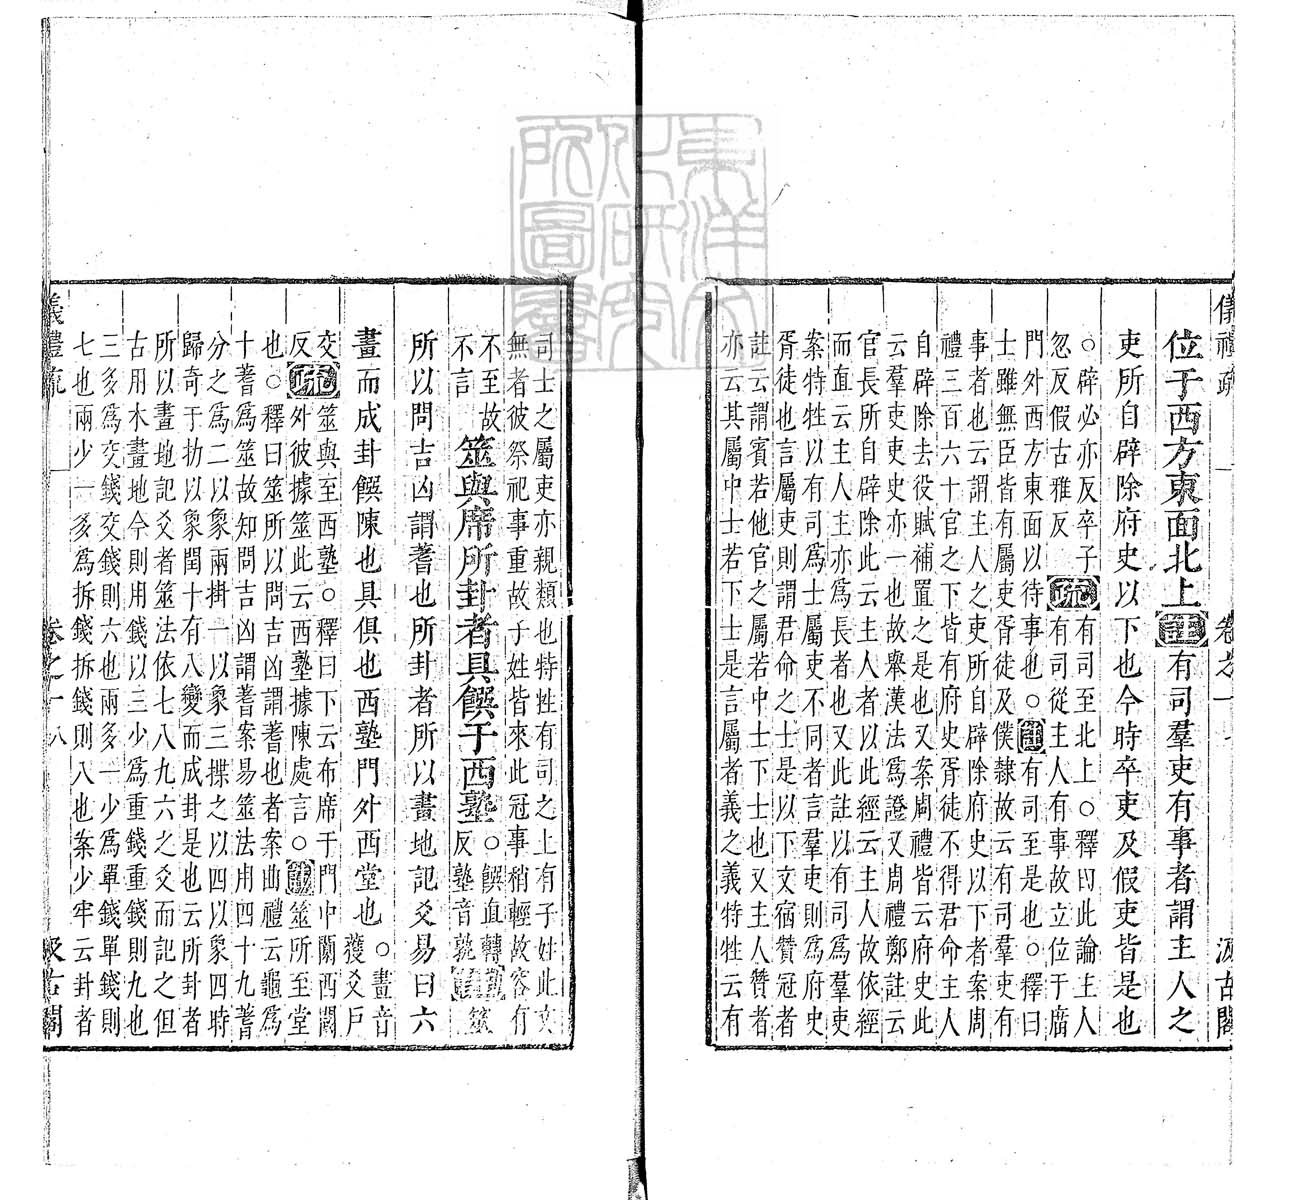 儀禮疏 卷之一 汲古閣
位于西方東面北上註有司羣吏有事者謂主人之
吏所自辟除府史以下也今時卒吏及假吏皆是也
○辟必亦反卒子
忽反假古雅反
疏有司至北上○釋曰此論主人
有司從主人有事故立位于廟
門外西方東面以待事也○註有司至是也○釋曰
士雖無臣皆有屬吏胥徒及僕隸故云有司羣吏有
事者也云謂主人之吏所自辟除府史以下者案周
禮三百六十官之下皆有府史胥徒不得君命主人
自辟除去役賦補置之是也又案周禮皆云府史此
云羣吏吏史亦一也故舉漢法爲證又周禮鄭註云
官長所自辟除此云主人者以此經云主人故依經
而直云主人主亦爲長者也又此註以有司爲羣吏
案特牲以有司爲士屬吏不同者言羣吏則爲府史
胥徒也言屬吏則謂君命之士是以下文宿贊冠者
註云謂賓若他官之屬若中士下士也又主人贊者
亦云其屬中士若下士是言屬者義之義特牲云有
司士之屬吏亦親類也特牲有司之上有子姓此文
無者彼祭祀事重故子姓皆來此冠事稍輕故容有
不至故
不言
筮與席所卦者具饌于西塾○饌直轉
反塾音孰註筮
所以問吉凶謂蓍也所卦者所以畫地記爻易曰六
畫而成卦饌陳也具俱也西塾門外西堂也○畫音
獲爻戶
交
反疏筮與至西塾○釋曰下云布席于門中闑西閾
外彼據筮此云西塾據陳處言○註筮所至堂
也○釋曰筮所以問吉凶謂蓍也者案曲禮云龜爲
十蓍爲筮故知問吉凶謂蓍案易筮法用四十九蓍
分之爲二以象兩掛一以象三揲之以四以象四時
歸奇于扐以象閏十有八變而成卦是也云所卦者
所以畫地記爻者筮法依七八九六之爻而記之但
古用木畫地今則用錢以三少爲重錢重錢則九也
三多爲交錢交錢則六也兩多一少爲單錢單錢則
七也兩少一多爲拆錢拆錢則八也案少牢云卦者
儀禮疏 卷之一 八 汲古閣